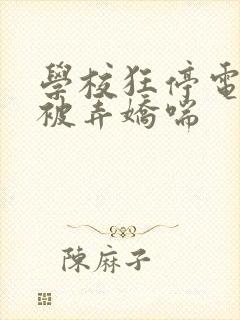 學校狂停電
被弄嬌喘
陳麻子